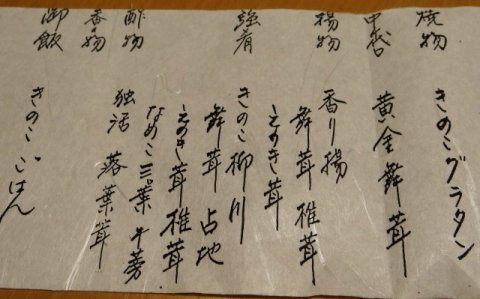 焼物 きのこグラタン
黄金舞茸
揚物 香り揚
舞茸 椎茸
えのき茸
強肴 きのこ柳川
舞茸 占地
えのき茸 椎茸
なめこ 三ッ葉 牛蒡
酢物 独活 落葉茸
香の物
御飯 きのこごはん